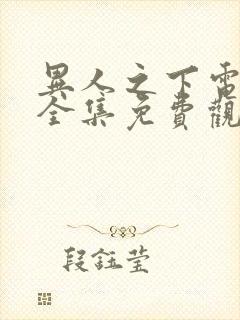 異人之下電
全集免費觀
段鈺瑩